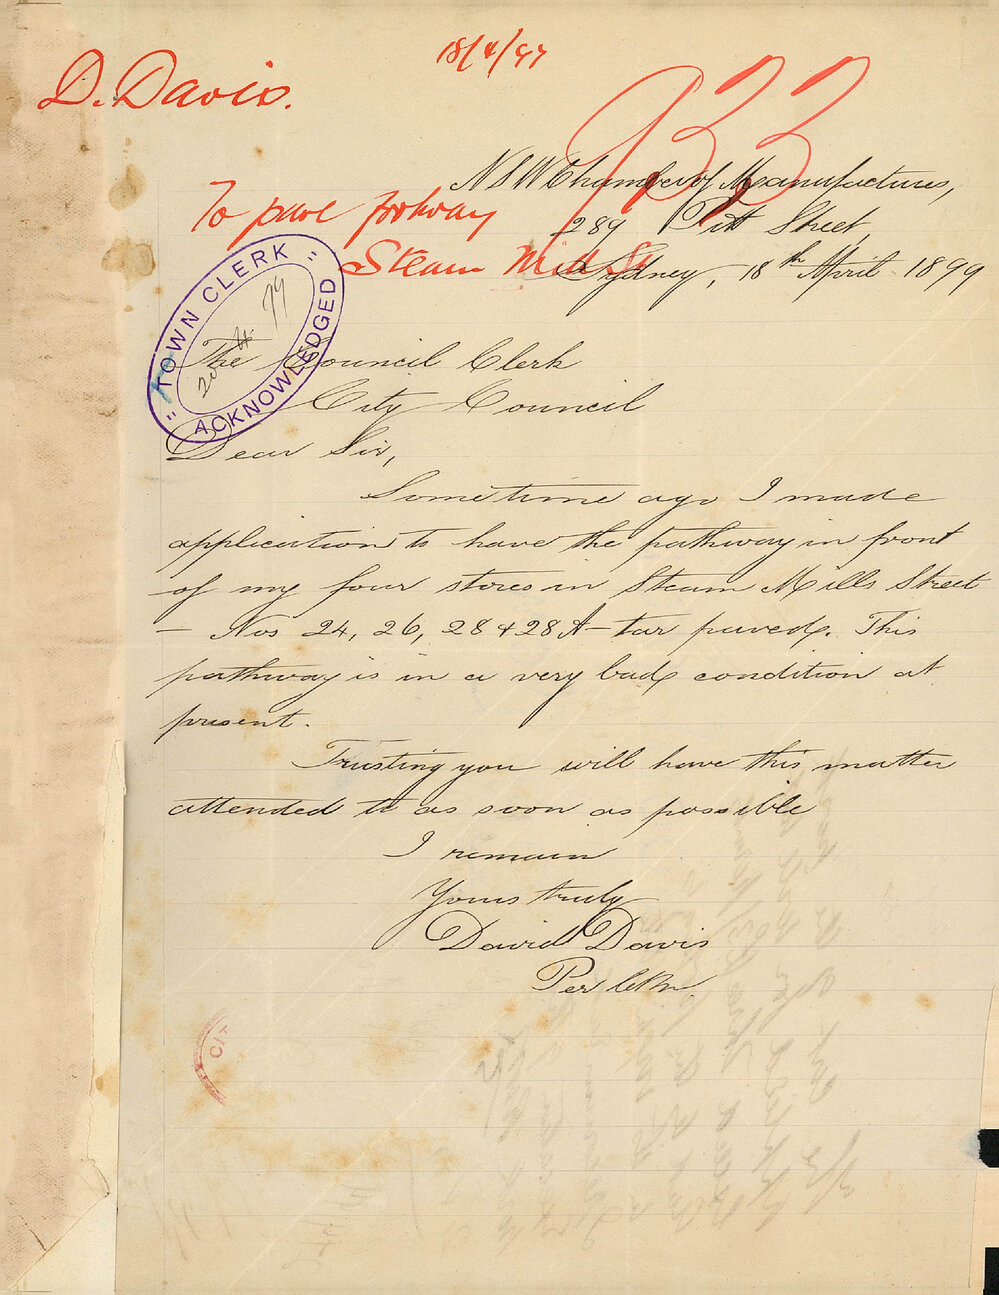 18/4/99
D. Davis.
933
To pave footway
Steam Mill St
NSW Chamber of Manufactures,
289 Pitt Street,
Sydney, 18th April 1899
"TOWN CLERK"
ACKNOWLEDGED
The Council Clerk
City Council
Dear Sir,
Sometime ago I made
application to have the pathway in front
of my four stores in Steam Mills Street
- Nos 24, 26, 28 & 28A - tar paved. This
pathway is in a very bad condition at
present.
Trusting you will have this matter
attended to as soon as possible
I remain
Yours truly
David Davis
Per
CIT